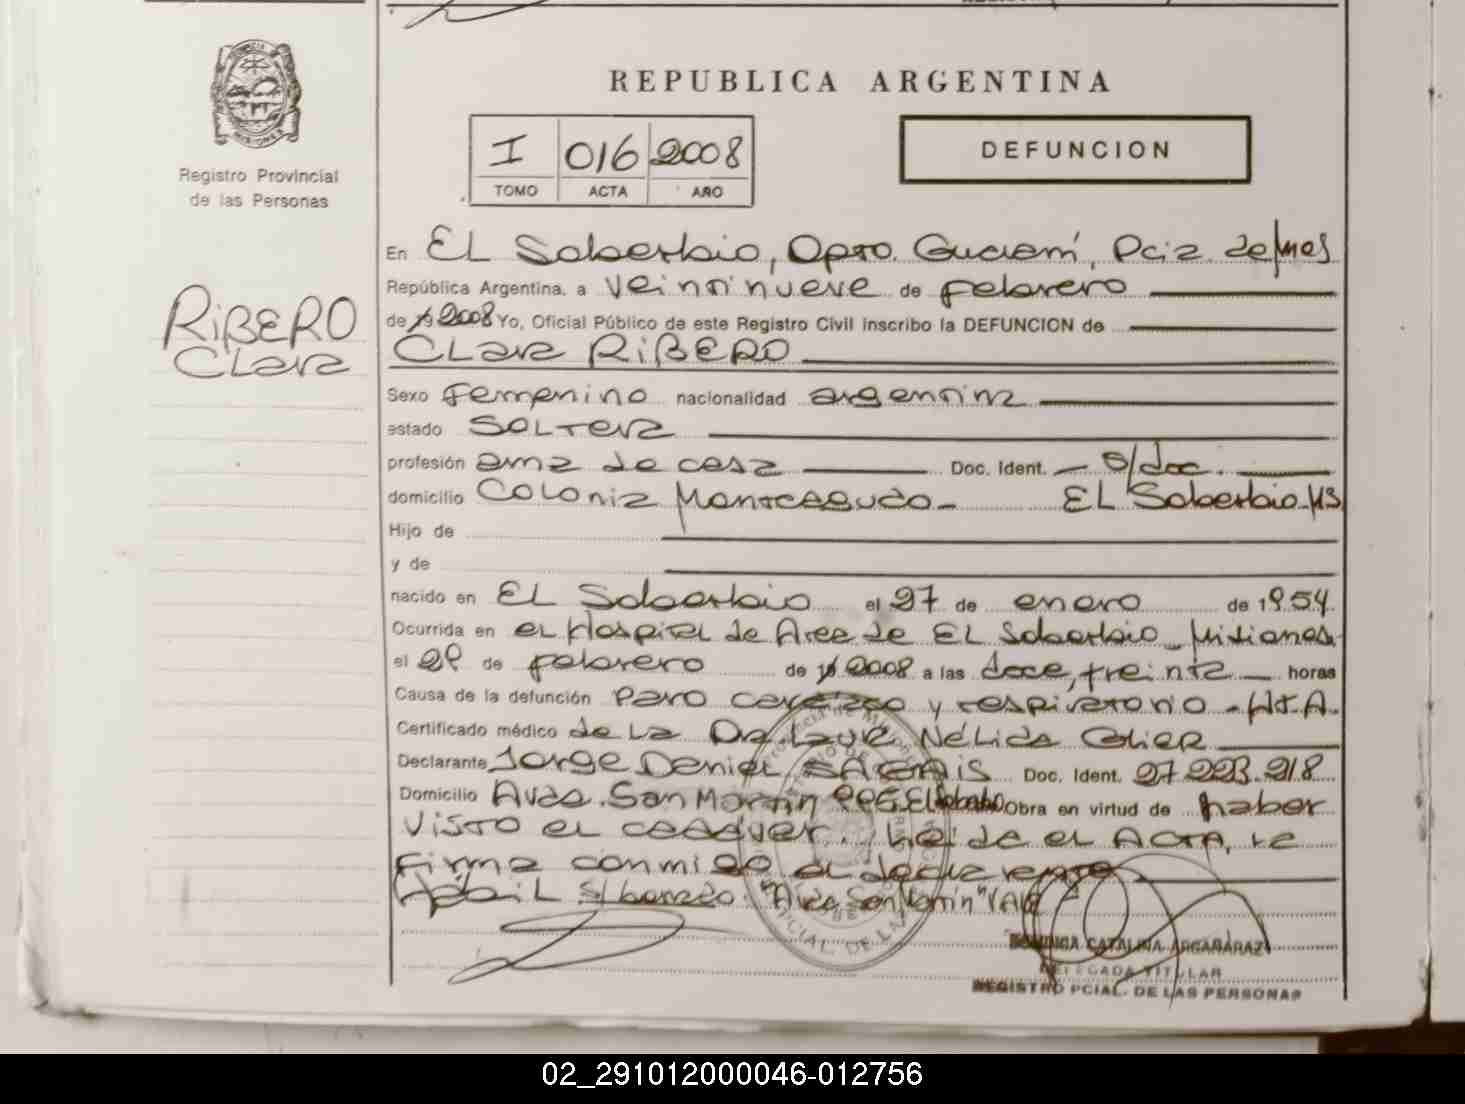 REPUBLICA ARGENTINA
I 016 2008
TOMO ACTA AÑO
DEFUNCION
PROVINCIA
MISIONES
Registro Provincial
de las Personas
RIBERO
Clara
En El Soberbio, Dpto. Guaraní, Pcia de Mnes
República Argentina, a veintinueve de febrero
de 19 2008 Yo, Oficial Público de este Registro Civil inscribo la DEFUNCION de
Clara RIBERO
Sexo femenino nacionalidad argentina
estado soltera
profesión ama de casa Doc. Ident. s/doc.
domicilio Colonia Monteagudo - El Soberbio - Ms
Hijo de
y de
nacido en El Soberbio el 27 de enero de 1954
Ocurrida en el Hospital de Area de El Soberbio - Misiones -
el 29 de febrero de 19 2008 a las doce, treinta horas
Causa de la defunción Paro cardíaco y respiratorio - H.T.A.
Certificado médico de la Dra. Laura Nélida
Declarante Jorge Daniel Doc. Ident. 27.223.218
Domicilio Avda. San Martín El Soberbio Obra en virtud de haber
visto el cadáver. Leída el ACTA, la
firma conmigo el declarante
s/borrado: "Avda San Martín" VALE
DOMINGA CATALINA ARGAÑARAZ
DELEGADA TITULAR
REGISTRO PCIAL. DE LAS PERSONAS
02_291012000046-012756